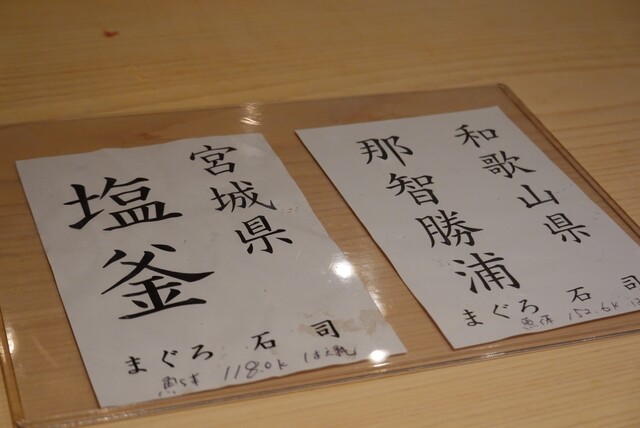 宮城県
塩釜
まぐろ 石司
118.0k
和歌山県
那智勝浦
まぐろ 石司
152.6k